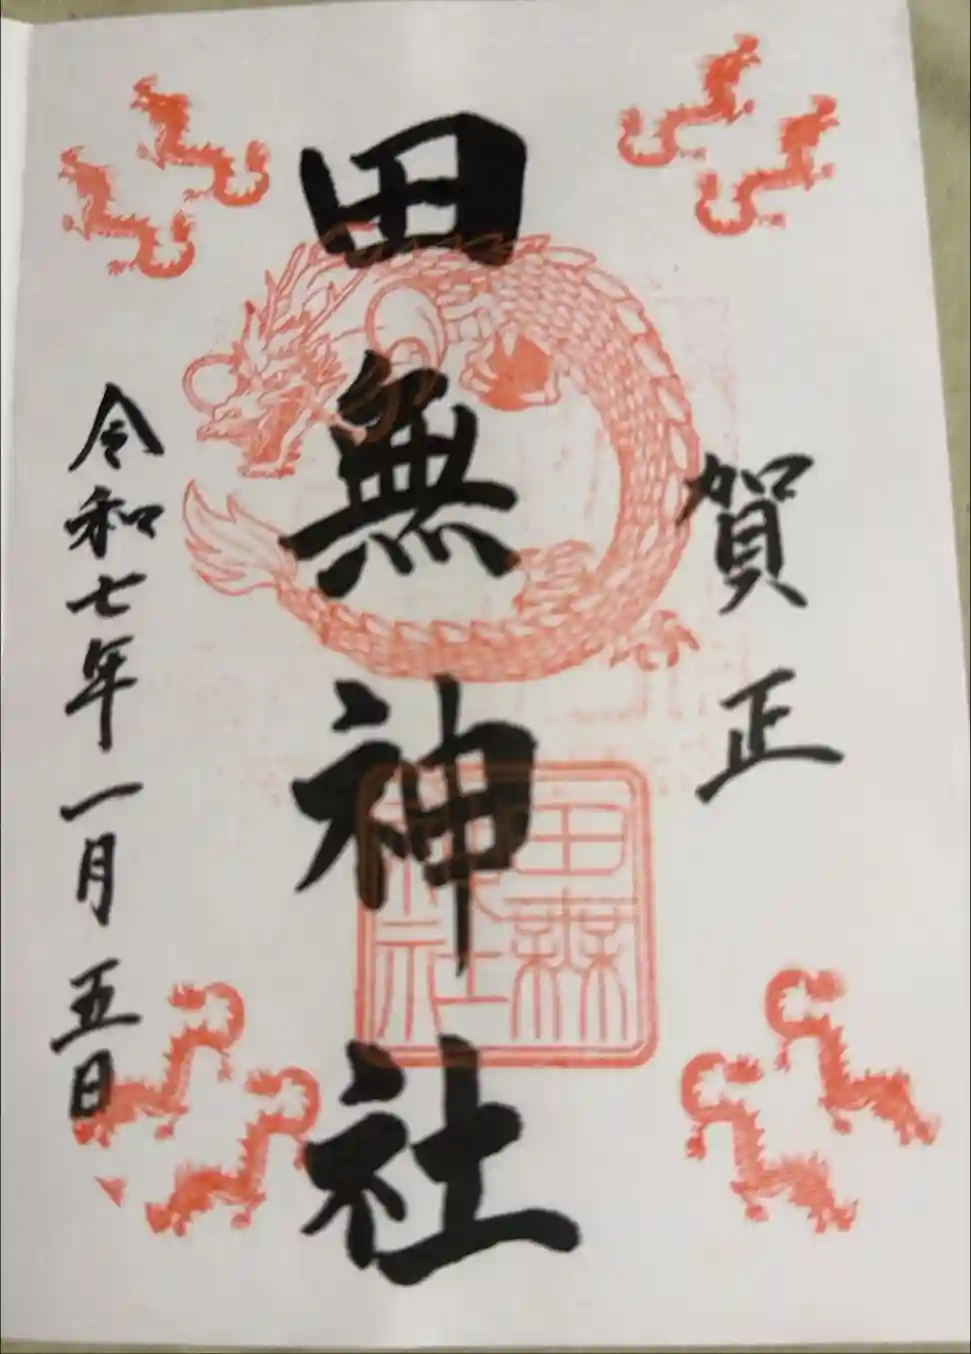 賀正
田無神社
田無神社
令和七年一月五日